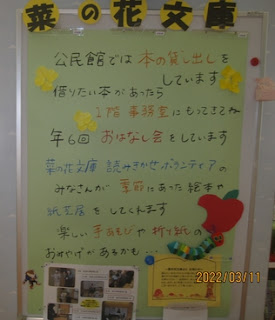 菜の花文庫
公民館では 本の貸し出しを
しています
借りたい本があったら
1階 事務室にもってきてね
年6回 おはなし会をしています
菜の花文庫 読みきかせボランティアの
みなさんが 季節にあった絵本や
紙芝居 をしてくれます
楽しい 手あそびや 折り紙の
おみやげがあるかも…
2022/03/11